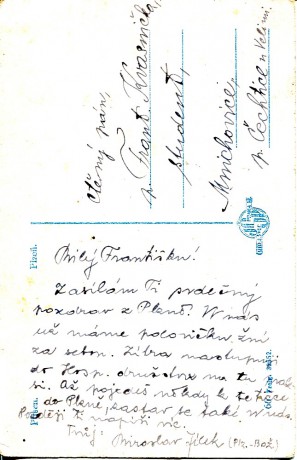 Ctěný pán,
p. Frant. Kvasnička,
student,
Mnichovice,
p. Čechtice u Velimi
Plzeň.
Pilsen.
Milý Františku!
Zasílám Ti srdečný
pozdrav z Plzně. U nás
už máme polovičku žní
za sebou. Zítra nastupuji
do Hosp. družstva na
si. Až pojedeš někdy k tetičce
do Plzně, zastav se také u nás.
Později Ti napíši víc.
Tvůj: Miroslav Jílek (Plz.-Bož.)